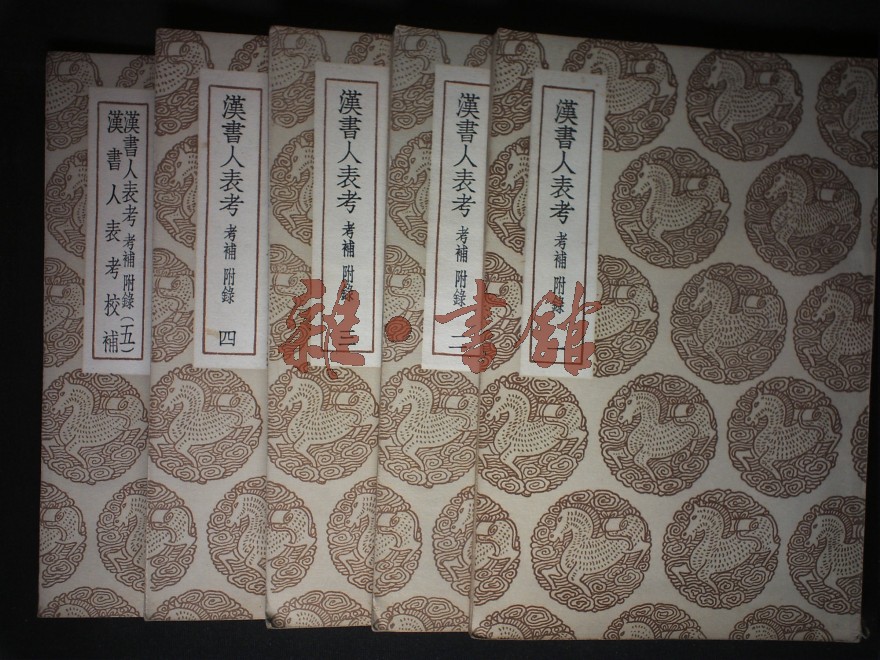 漢書人表考 考補 附錄 一
漢書人表考 考補 附錄 二
漢書人表考 考補 附錄 三
漢書人表考 考補 附錄 四
漢書人表考 考補 附錄(五)
漢書人表考校補
雜·書館